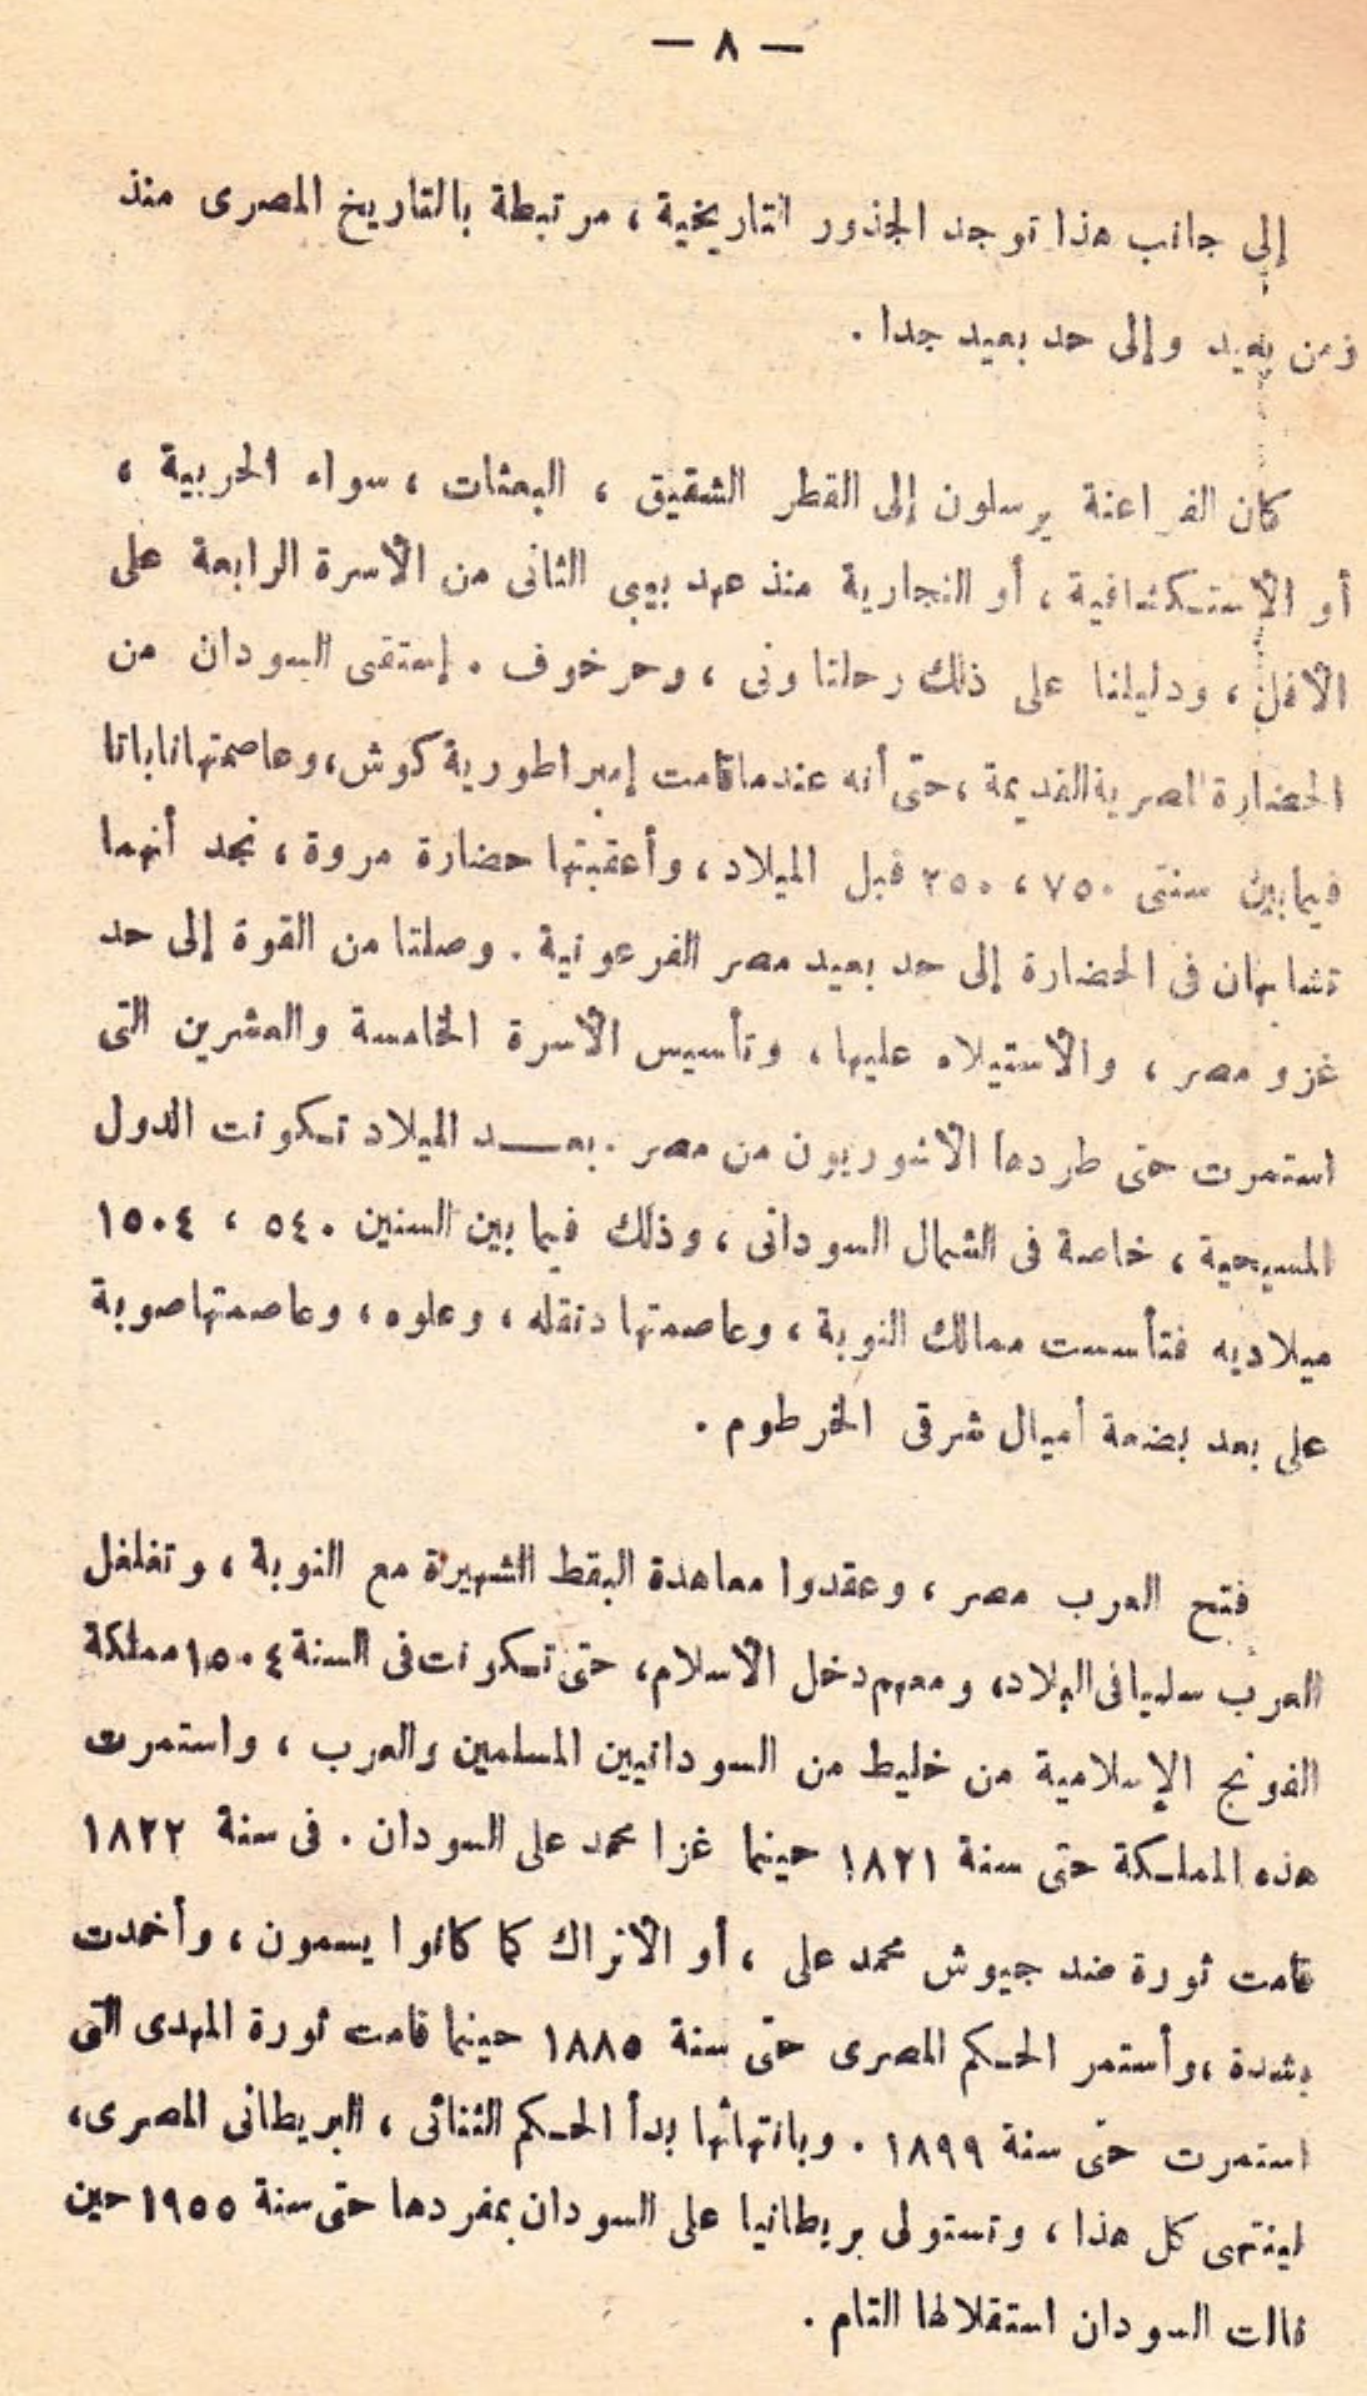 — ٨ —
إلى جانب هذا توجد الجذور التاريخية ، مرتبطة بالتاريخ المصرى منذ
زمن بعيد وإلى حد بعيد جدا .
كان الفراعنة يرسلون إلى القطر الشقيق ، البعثات ، سواء الحربية ،
أو الاستكشافية ، أو التجارية منذ عهد بيبى الثانى من الأسرة الرابعة على
الأقل ، ودليلنا على ذلك رحلتا ونى ، وحرخوف . إستقى السودان من
الحضارة المصرية القديمة ، حتى أنه عندما قامت إمبراطورية كوش ، وعاصمتها ناباتا
فيما بين سنتى ٧٥٠ ، ٢٥٠ قبل الميلاد ، وأعقبتها حضارة مروة ، نجد أنهما
تشابهان فى الحضارة إلى حد بعيد مصر الفرعونية . وصلتا من القوة إلى حد
غزو مصر ، والأستيلاء عليها ، وتأسيس الأسرة الخامسة والعشرين التى
استمرت حتى طردها الأشوريون من مصر . بعـــد الميلاد تكونت الدول
المسيحية ، خاصة فى الشمال السودانى ، وذلك فيما بين السنين ٥٤٠ ، ١٥٠٤
ميلاديه فتأسست ممالك النوبة ، وعاصمتها دنقله ، وعلوه ، وعاصمتها صوبة
على بعد بضعة أميال شرقى الخرطوم .
فتح العرب مصر ، وعقدوا معاهدة البقط الشهيرة مع النوبة ، وتغلغل
العرب سلميا فى البلاد ، ومعهم دخل الأسلام ، حتى تكونت فى السنة ١٥٠٤ مملكة
الفونج الإسلامية من خليط من السودانيين المسلمين والعرب ، واستمرت
هذه المملكة حتى سنة ١٨٢١ حينما غزا محمد على السودان . فى سنة ١٨٢٢
قامت ثورة ضد جيوش محمد على ، أو الأتراك كما كانوا يسمون ، وأخمدت
بشدة ، وأستمر الحكم المصرى حتى سنة ١٨٨٥ حينما قامت ثورة المهدى التى
استمرت حتى سنة ١٨٩٩ . وبانتهائها بدأ الحكم الثنائى ، البريطانى المصرى ،
لينتهى كل هذا ، وتستولى بريطانيا على السودان بمفردها حتى سنة ١٩٥٥ حين
نالت السودان استقلالها التام .